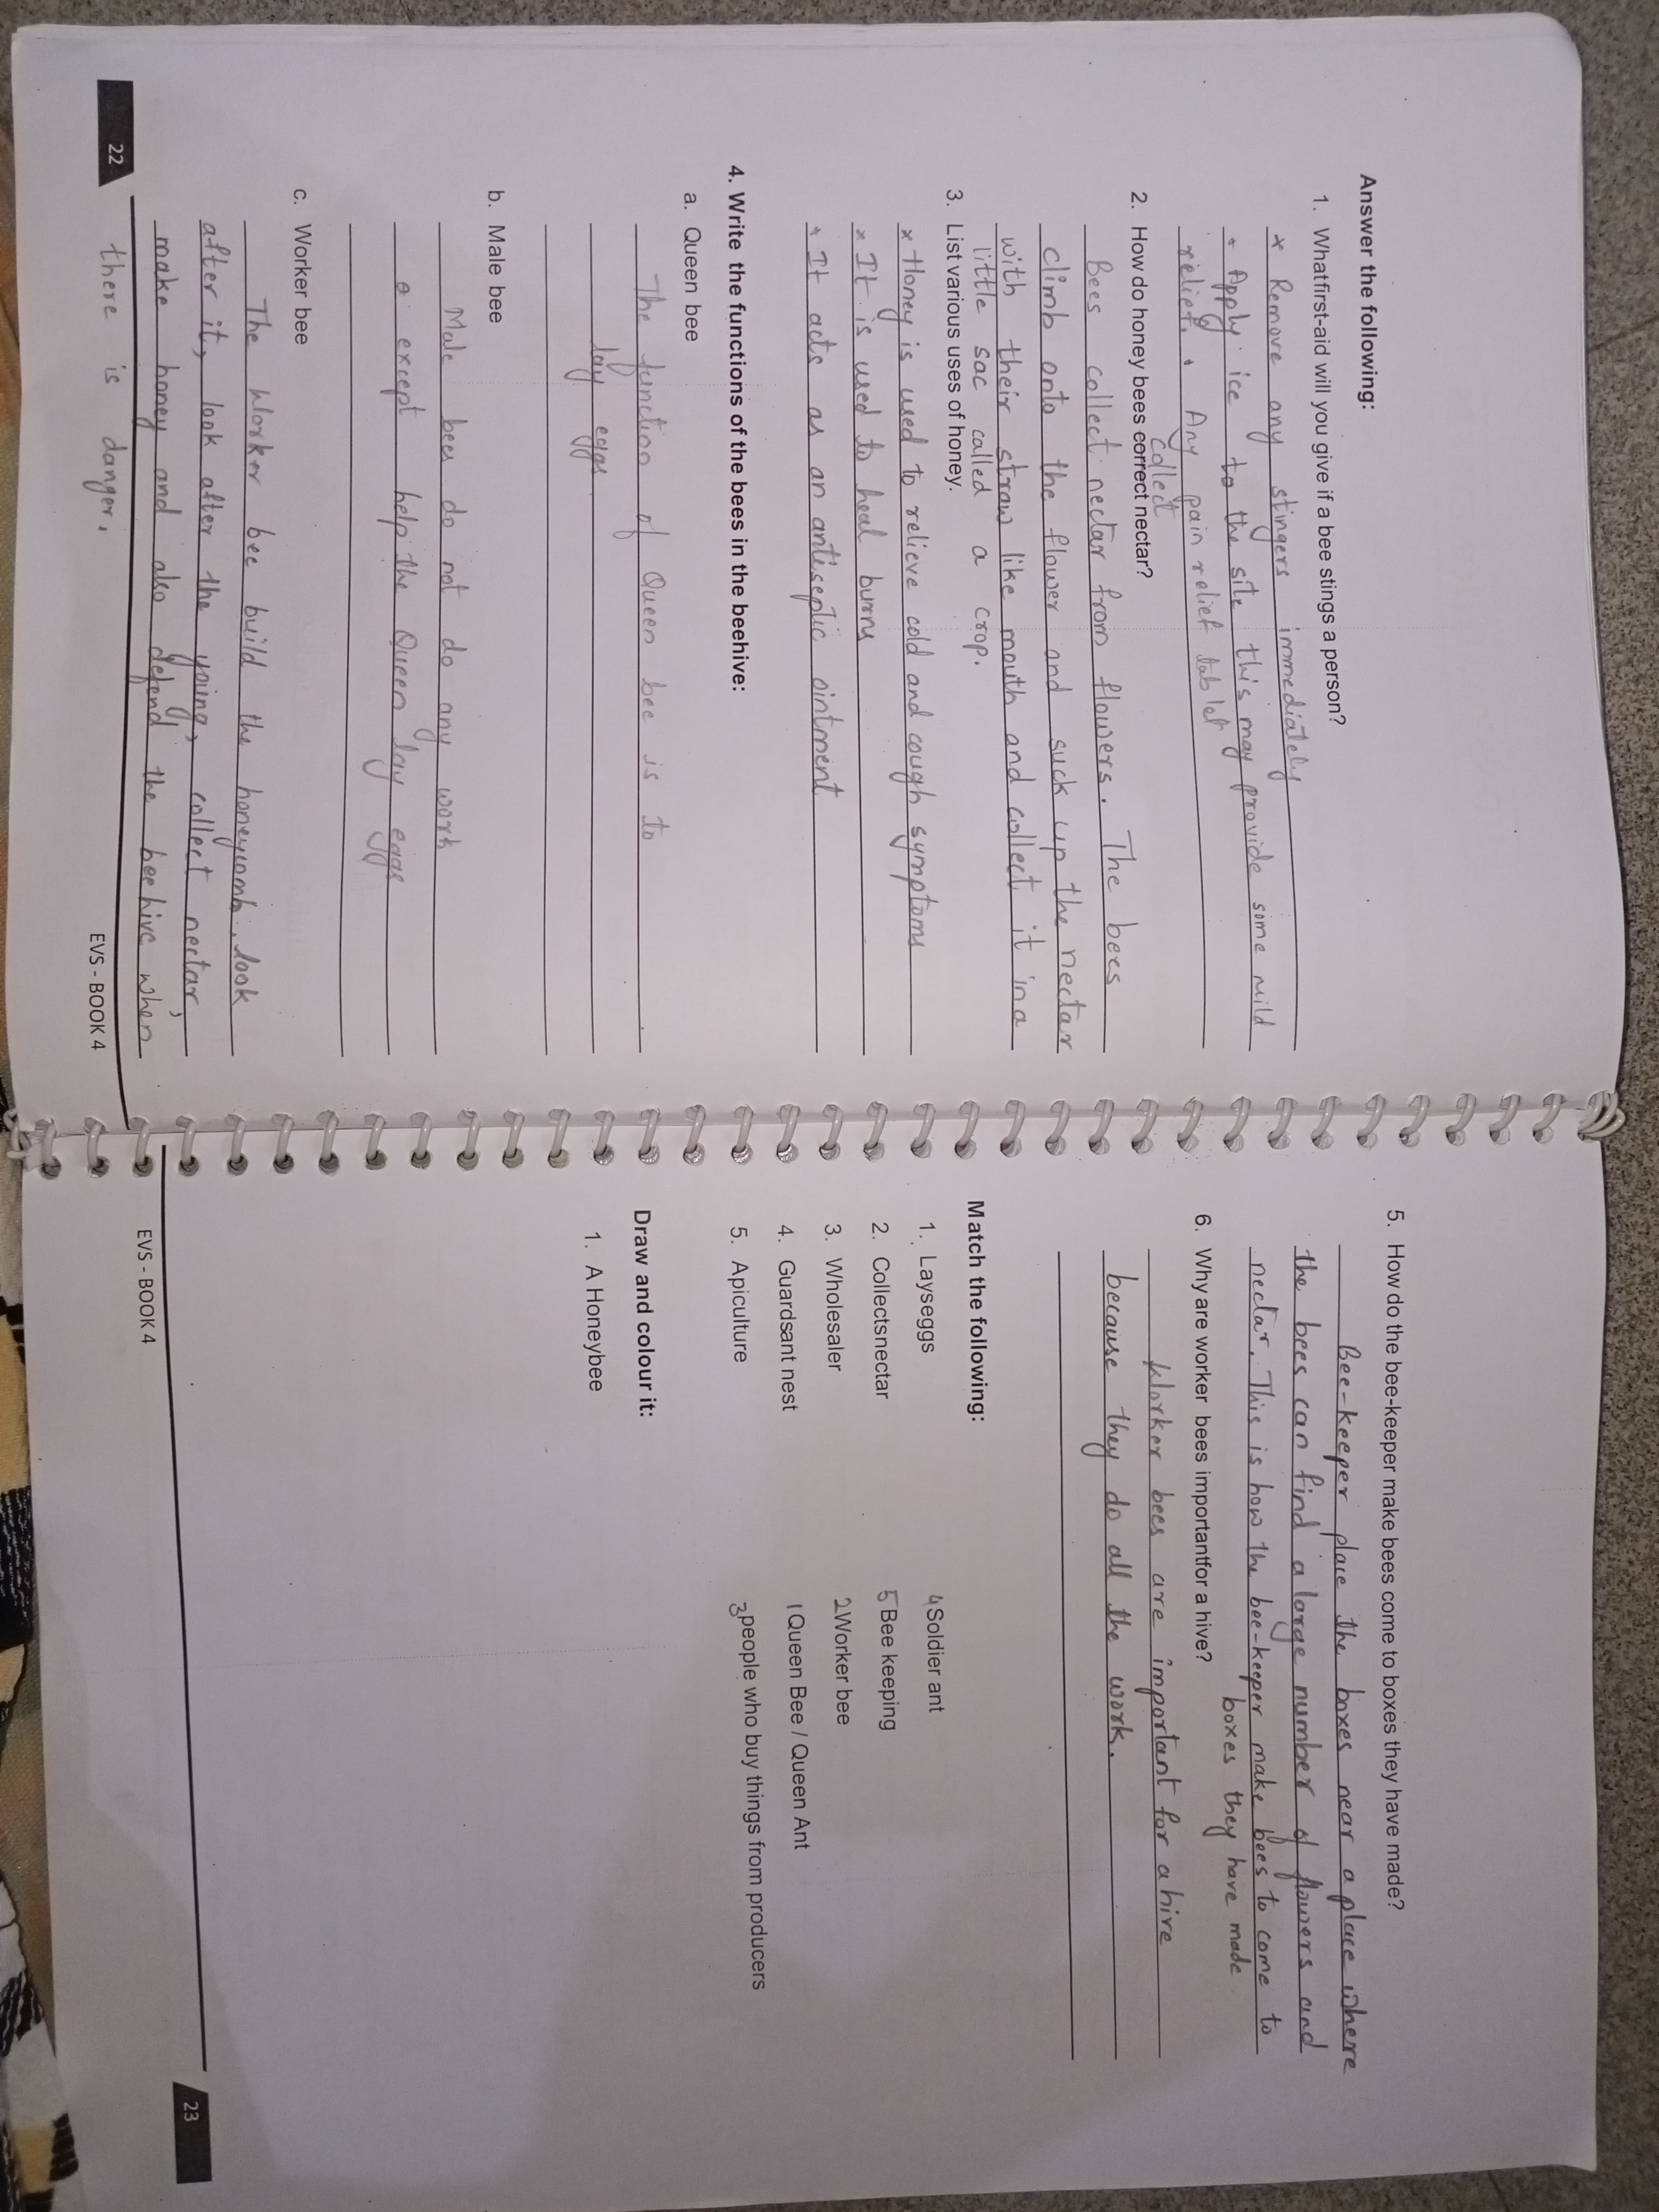 Answer the following:
1. Whatfirst-aid will you give if a bee stings a person?
x Remove any stingers immediately
* Apply ice to the site this may provide some mild
relief. * Any pain relief tablet
collect
2. How do honey bees correct nectar?
Bees collect nectar from flowers. The bees
climb onto the flower and suck up the nectar
with their straw like mouth and collect it in a
little sac called a crop.
3. List various uses of honey.
x Honey is used to relieve cold and cough symptoms
x It is used to heal burns
* It acts as an antiseptic ointment
4. Write the functions of the bees in the beehive:
a. Queen bee
The function of Queen bee is to
lay eggs
b. Male bee
Male bees do not do any work
except help the Queen lay eggs
c. Worker bee
The Worker bee build the honeycomb, look
after it, look after the young, collect nectar,
make honey and also defend the beehive when
there is danger.
22
EVS - BOOK 4
5. How do the bee-keeper make bees come to boxes they have made?
Bee-keeper place the boxes near a place where
the bees can find a large number of flowers and
nectar. This is how the bee-keeper make bees to come to
boxes they have made
6. Why are worker bees importantfor a hive?
Worker bees are important for a hive
because they do all the work.
Match the following:
1. Layseggs 4 Soldier ant
2. Collectsnectar 5 Bee keeping
3. Wholesaler 2 Worker bee
4. Guardsant nest 1 Queen Bee / Queen Ant
5. Apiculture 3 people who buy things from producers
Draw and colour it:
1. A Honeybee
EVS - BOOK 4
23